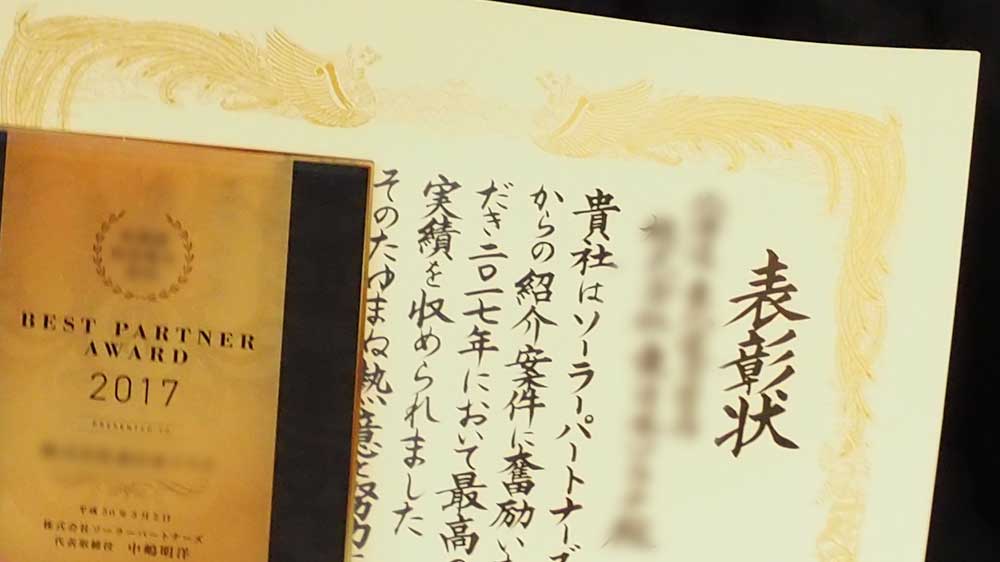 表彰状
貴社はソーラーパートナーズ
からの紹介案件に奮励い
だき二〇一七年において最高の
実績を収められました
そのたゆまぬ熱意と努力に
BEST PARTNER
AWARD
2017
PRESENTED TO
平成30年3月2日
株式会社ソーラーパートナーズ
代表取締役 中嶋明洋